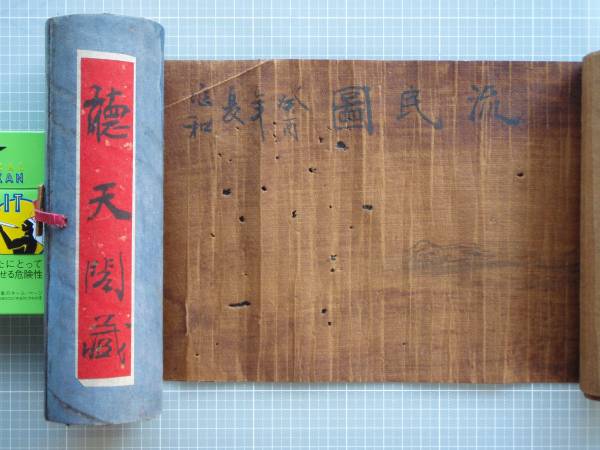 聽天閣藏
流民圖
癸酉
年
KAN
IT
たにとって
せる危険性